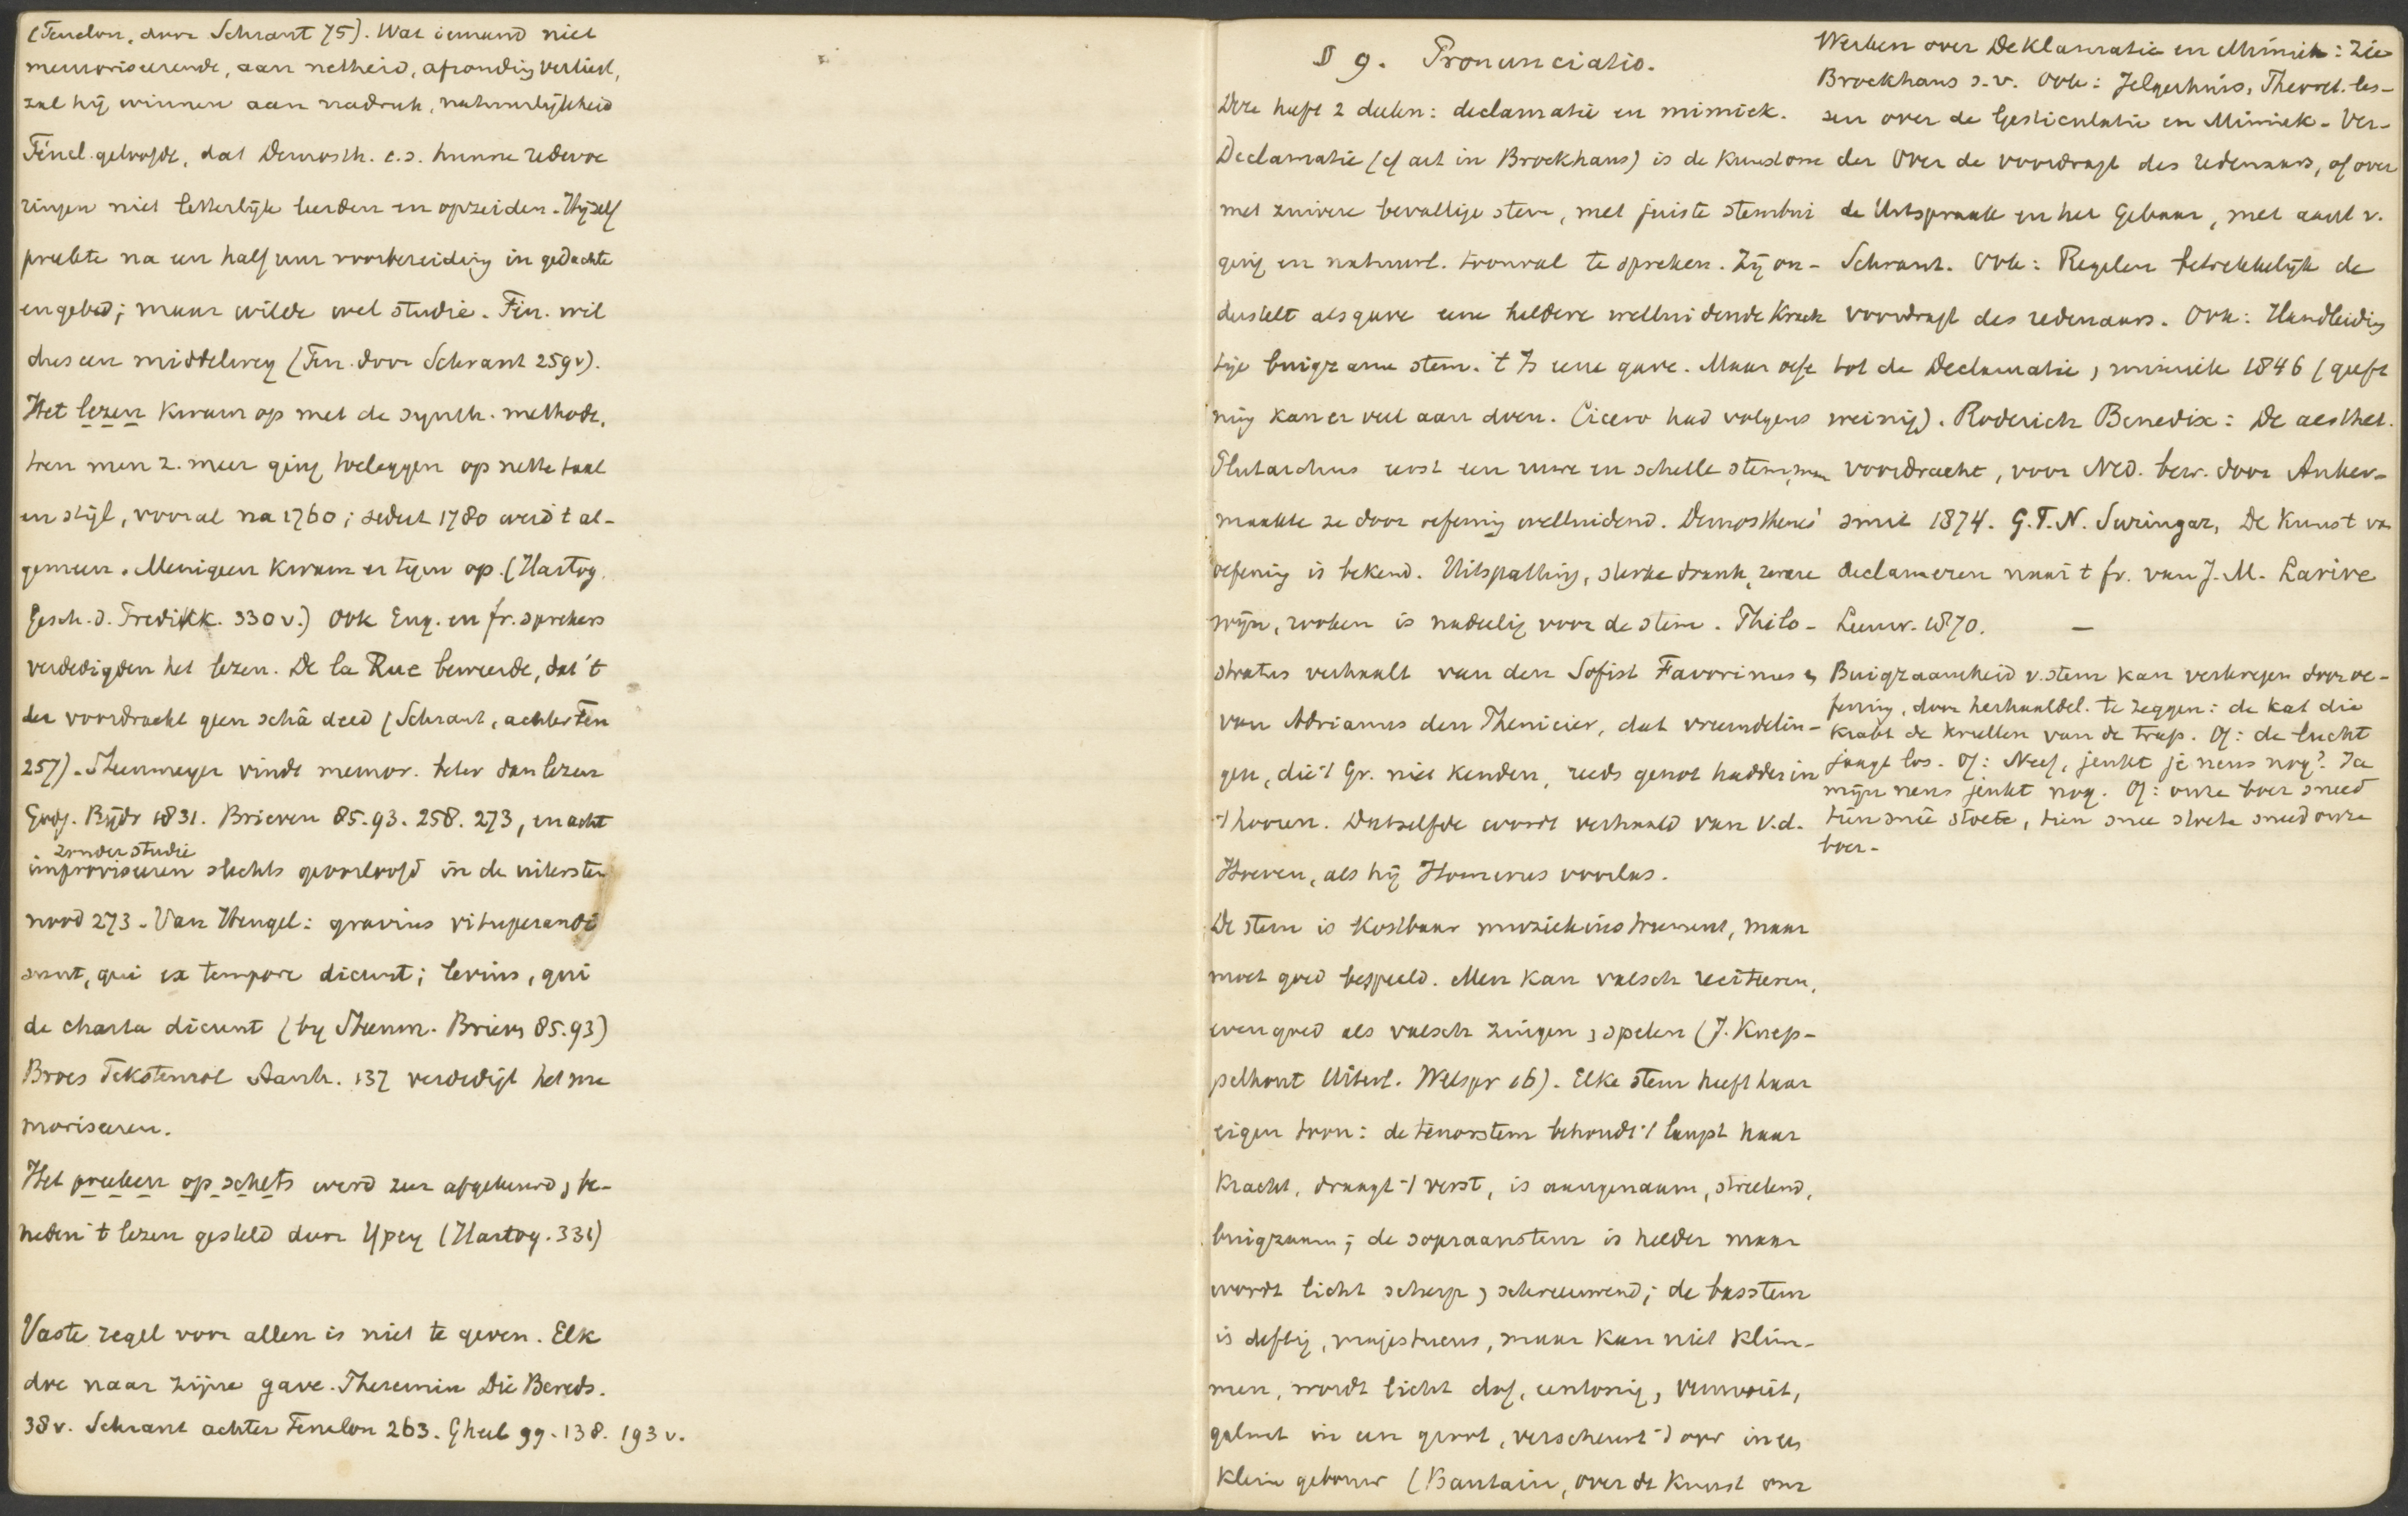 (Fenelon, door Schrant 75). Wat iemand niet
memoriseerende, aan netheid, afronding verliest,
zal hij winnen aan nadruk, natuurlijkheid
Fénel. geloofde, dat Demosth. c.s. hunne redevoe
ringen niet letterlijk leerden en opzeiden. Hijzelf
preekte na een half uur voorbereiding in gedachte
en gebed; maar wilde wel studie. Fén. wil
dus een middelweg (Fén. door Schrant 259v).
Het lezen kwam op met de synth. methode,
toen men z. meer ging toeleggen op nette taal
en stijl, vooral na 1760; sedert 1780 werd t al-
gemeen. Menigeen kwam er tegen op. (Hartog,
Gesch. d. Predikk. 330v.) Ook Eng. en fr. sprekers
verdedigden het lezen. De la Rue beweerde, dat 't
der voordracht geen schâ deed (Schrant, achter Fén
257). Steenmeyer vindt memor. beter dan lezen
Godg. Bijdr 1831. Brieven 85.93.258.273, en acht
zonder studie
improviseeren slechts geoorloofd in de uiterste
nood 273. Van Hengel: gravius vituperandi
sunt, qui ex tempore dicunt; levius, qui
de charta dicunt (by Steenm. Briev 85.93)
Broes Tekstenrol Aanh. 137 verdedigt het me
moriseeren.
Het preeken op schets werd zeer afgekeurd, be-
neden 't lezen gesteld door Ypey (Hartog. 331)
Vaste regel voor allen is niet te geven. Elk
doe naar zijne gave. Theremin Die Bereds.
38v. Schrant achter Fenelon 263. Gheel 99.138.193v.
§ 9. Pronunciatio.
Deze heeft 2 deelen: declamatie en mimick.
Declamatie (cf art in Brockhaus) is de kunst om
met zuivere bevallige stem, met juiste stembui
ging en natuurl. toonval te spreken. Zij on-
derstelt als gave eene heldere welluidende krach
tige buigzame stem. 't Is eene gave. Maar oefe
ning kan er veel aan doen. Cicero had volgens
Plutarchus eerst een ruwe en schelle stem, maar
maakte ze door oefening welluidend. Demosthenes'
oefening is bekend. Uitspatting, sterke drank, zware
wijn, rooken is nadeelig voor de stem. Philo-
stratus verhaalt van den Sofist Favorinus en
van Adrianus den Phenicier, dat vreemdelin-
gen, die 't Gr. niet kenden, reeds genot hadden in
't hooren. Datzelfde wordt verhaald van v.d.
Hoeven, als hij Homerus voorlas.
De stem is kostbaar muziekinstrument, maar
moet goed bespeeld. Men kan valsch reciteeren,
even goed als valsch zingen, spelen (J. Knep-
pelhout Uiterl. Welspr 16). Elke stem heeft haar
eigen toon: de tenorstem behoudt 't langst haar
kracht, draagt 't verst, is aangenaam, streelend,
buigzaam; de sopraanstem is helder maar
wordt licht scherp, schreeuwend; de basstem
is deftig, majestueus, maar kan niet klim-
men, wordt licht dof, eentonig, vermoeit,
galmt in een groot, verscheurt 't oor in een
klein gebouw (Bautain, over de kunst om
Werken over Deklamatie en Mimiek: Zie
Brockhaus s.v. Ook: Jelgerhuis, Theoret. les-
sen over de Gesticulatie en Mimiek. Ver-
der Over de voordragt des redenaars, of over
de Uitspraak en het Gebaar, met aant v.
Schrant. Ook: Regelen betrekkelijk de
voordragt des redenaars. Ook: Handleiding
tot de Declamatie, mimiek 1846 (geeft
weinig). Roderich Benedix: De aesthet.
voordracht, voor Ned. bew. door Anker-
smit 1874. G.T.N. Suringar, De kunst van
declameren naar t fr. van J.M. Larive
Leeuw. 1870. —
Buigzaamheid v. stem kan verkregen door oe-
fening, door herhaaldel. te zeggen: de kat die
krabt de krullen van de trap. Of: de lucht
jaagt los. Of: Neef, jeukt je neus nog? Ja
mijn neus jeukt nog. Of: onze boer sneed
tien sneê stoete, tien snee stoete sneed onze
boer.